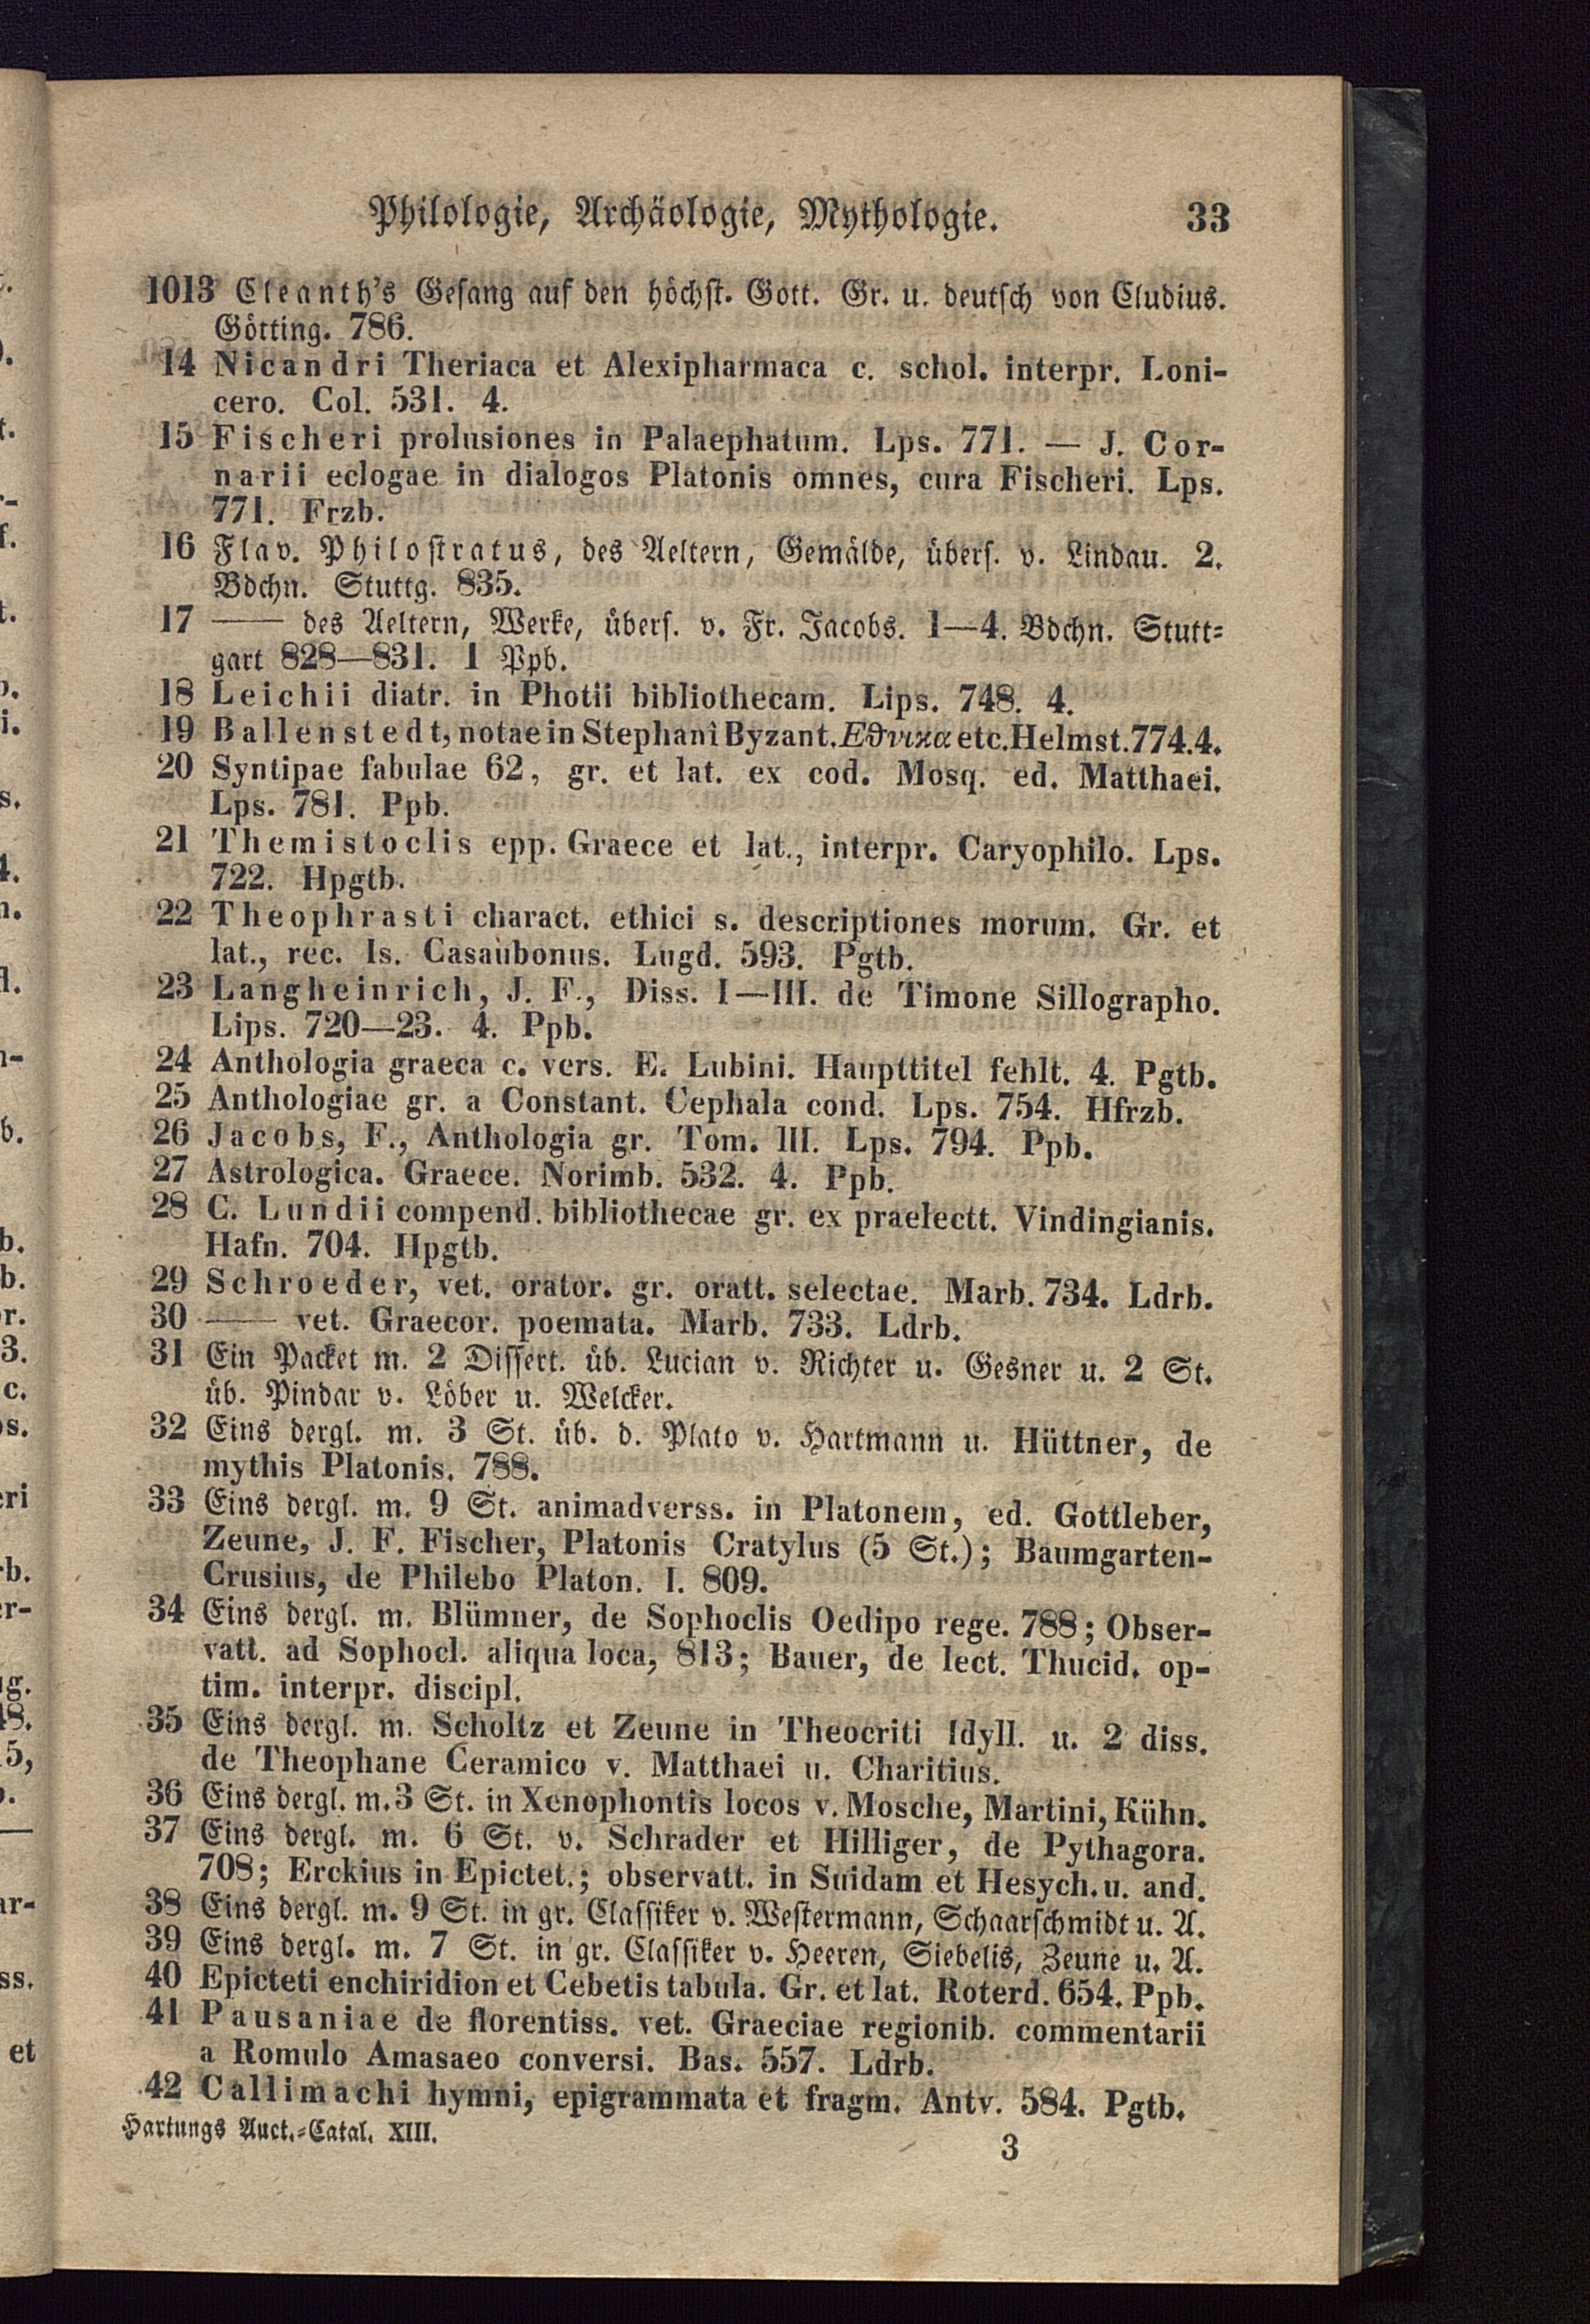 Philologie, Archäologie, Mythologie. 33
1013 Cleanth's Gesang auf den höchst. Gott. Gr. u. deutsch von Cludius.
Götting. 786.
14 Nicandri Theriaca et Alexipharmaca c. schol. interpr. Loni-
cero. Col. 531. 4.
15 Fischeri prolusiones in Palaephatum. Lps. 771. — J. Cor-
narii eclogae in dialogos Platonis omnes, cura Fischeri. Lps.
771. Frzb.
16 Flav. Philostratus, des Aeltern, Gemälde, übers. v. Lindau. 2.
Bdchn. Stuttg. 835.
17 —— des Aeltern, Werke, übers. v. Fr. Jacobs. 1—4. Bdchn. Stutt-
gart 828—831. 1 Ppb.
18 Leichii diatr. in Photii bibliothecam. Lips. 748. 4.
19 Ballenstedt, notae in Stephani Byzant. Εϑνικα etc. Helmst. 774. 4.
20 Syntipae fabulae 62, gr. et lat. ex cod. Mosq. ed. Matthaei.
Lps. 781. Ppb.
21 Themistoclis epp. Graece et lat., interpr. Caryophilo. Lps.
722. Hpgtb.
22 Theophrasti charact. ethici s. descriptiones morum. Gr. et
lat., rec. Is. Casaubonus. Lugd. 593. Pgtb.
23 Langheinrich, J. F., Diss. I—III. de Timone Sillographo.
Lips. 720—23. 4. Ppb.
24 Anthologia graeca c. vers. E. Lubini. Haupttitel fehlt. 4. Pgtb.
25 Anthologiae gr. a Constant. Cephala cond. Lps. 754. Hfrzb.
26 Jacobs, F., Anthologia gr. Tom. III. Lps. 794. Ppb.
27 Astrologica. Graece. Norimb. 532. 4. Ppb.
28 C. Lundii compend. bibliothecae gr. ex praelectt. Vindingianis.
Hafn. 704. Hpgtb.
29 Schroeder, vet. orator. gr. oratt. selectae. Marb. 734. Ldrb.
30 —— vet. Graecor. poemata. Marb. 733. Ldrb.
31 Ein Packet m. 2 Dissert. üb. Lucian v. Richter u. Gesner u. 2 St.
üb. Pindar v. Löber u. Welcker.
32 Eins dergl. m. 3 St. üb. d. Plato v. Hartmann u. Hüttner, de
mythis Platonis. 788.
33 Eins dergl. m. 9 St. animadverss. in Platonem, ed. Gottleber,
Zeune, J. F. Fischer, Platonis Cratylus (5 St.); Baumgarten-
Crusius, de Philebo Platon. I. 809.
34 Eins dergl. m. Blümner, de Sophoclis Oedipo rege. 788; Obser-
vatt. ad Sophocl. aliqua loca, 813; Bauer, de lect. Thucid. op-
tim. interpr. discipl.
35 Eins dergl. m. Scholtz et Zeune in Theocriti Idyll. u. 2 diss.
de Theophane Ceramico v. Matthaei u. Charitius.
36 Eins dergl. m. 3 St. in Xenophontis locos v. Mosche, Martini, Kühn.
37 Eins dergl. m. 6 St. v. Schrader et Hilliger, de Pythagora.
708; Erckius in Epictet.; observatt. in Suidam et Hesych. u. and.
38 Eins dergl. m. 9 St. in gr. Classiker v. Westermann, Schaarschmidt u. A.
39 Eins dergl. m. 7 St. in gr. Classiker v. Heeren, Siebelis, Zeune u. A.
40 Epicteti enchiridion et Cebetis tabula. Gr. et lat. Roterd. 654. Ppb.
41 Pausaniae de florentiss. vet. Graeciae regionib. commentarii
a Romulo Amasaeo conversi. Bas. 557. Ldrb.
42 Callimachi hymni, epigrammata et fragm. Antv. 584. Pgtb.
Hartungs Auct.-Catal. XIII. 3